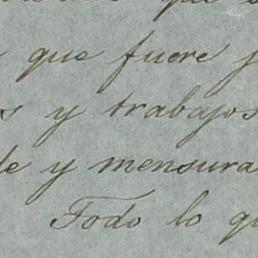 que fuere
y trabajos
de y mensura
Todo lo